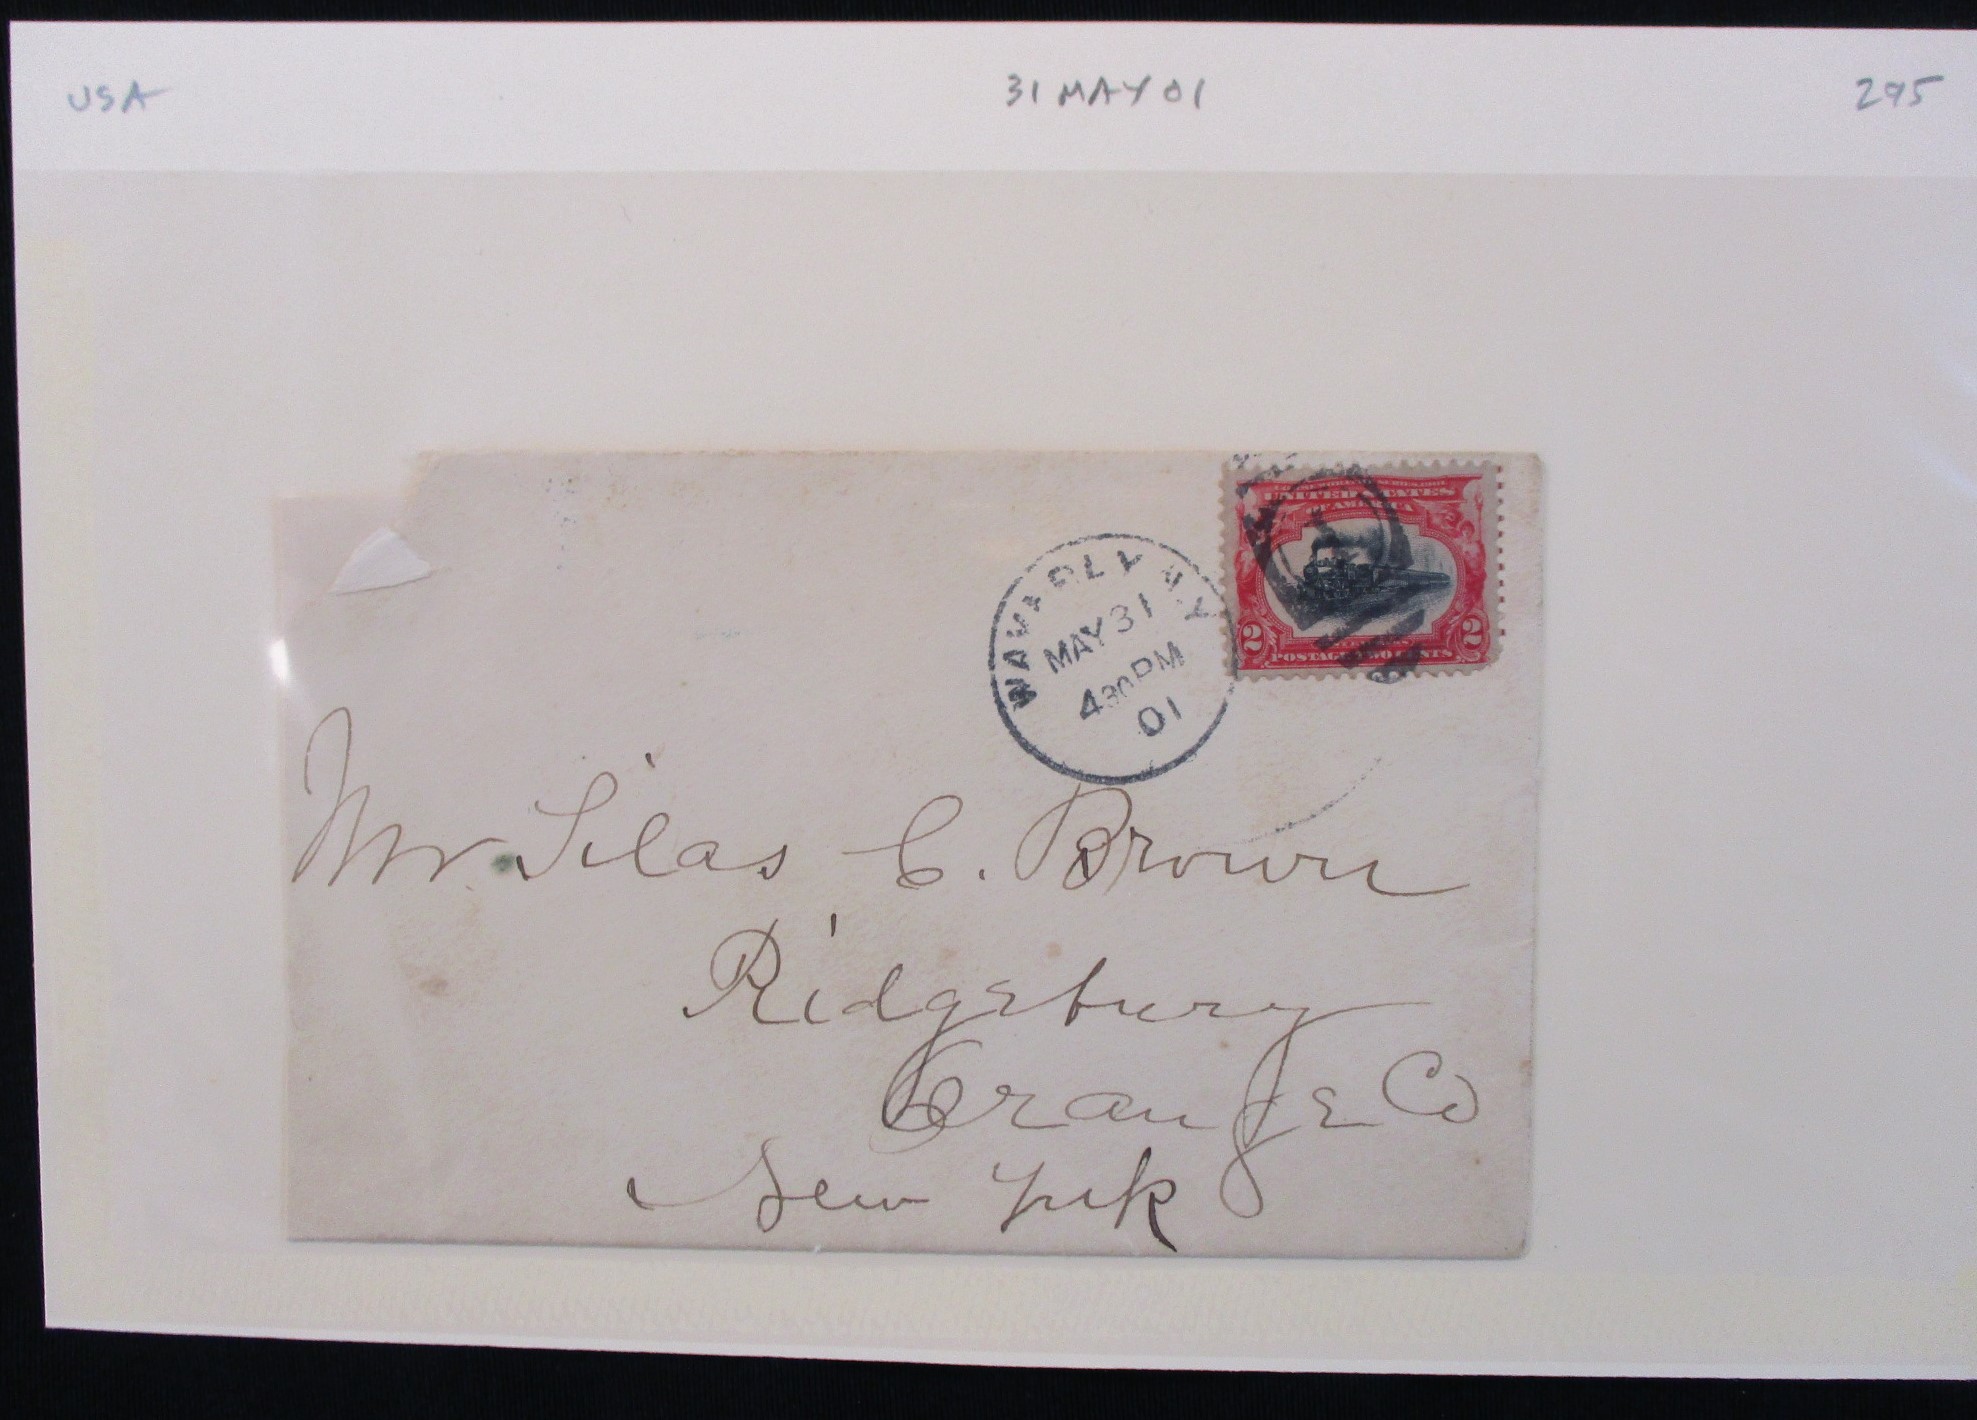 USA 31 MAY 01 295
WAVERLY N.Y.
MAY 31
430 PM
01
UNITED STATES
OF AMERICA
2 2
POSTAGE TWO CENTS
Mr Silas C. Brown
Ridgebury
Orange Co
New York